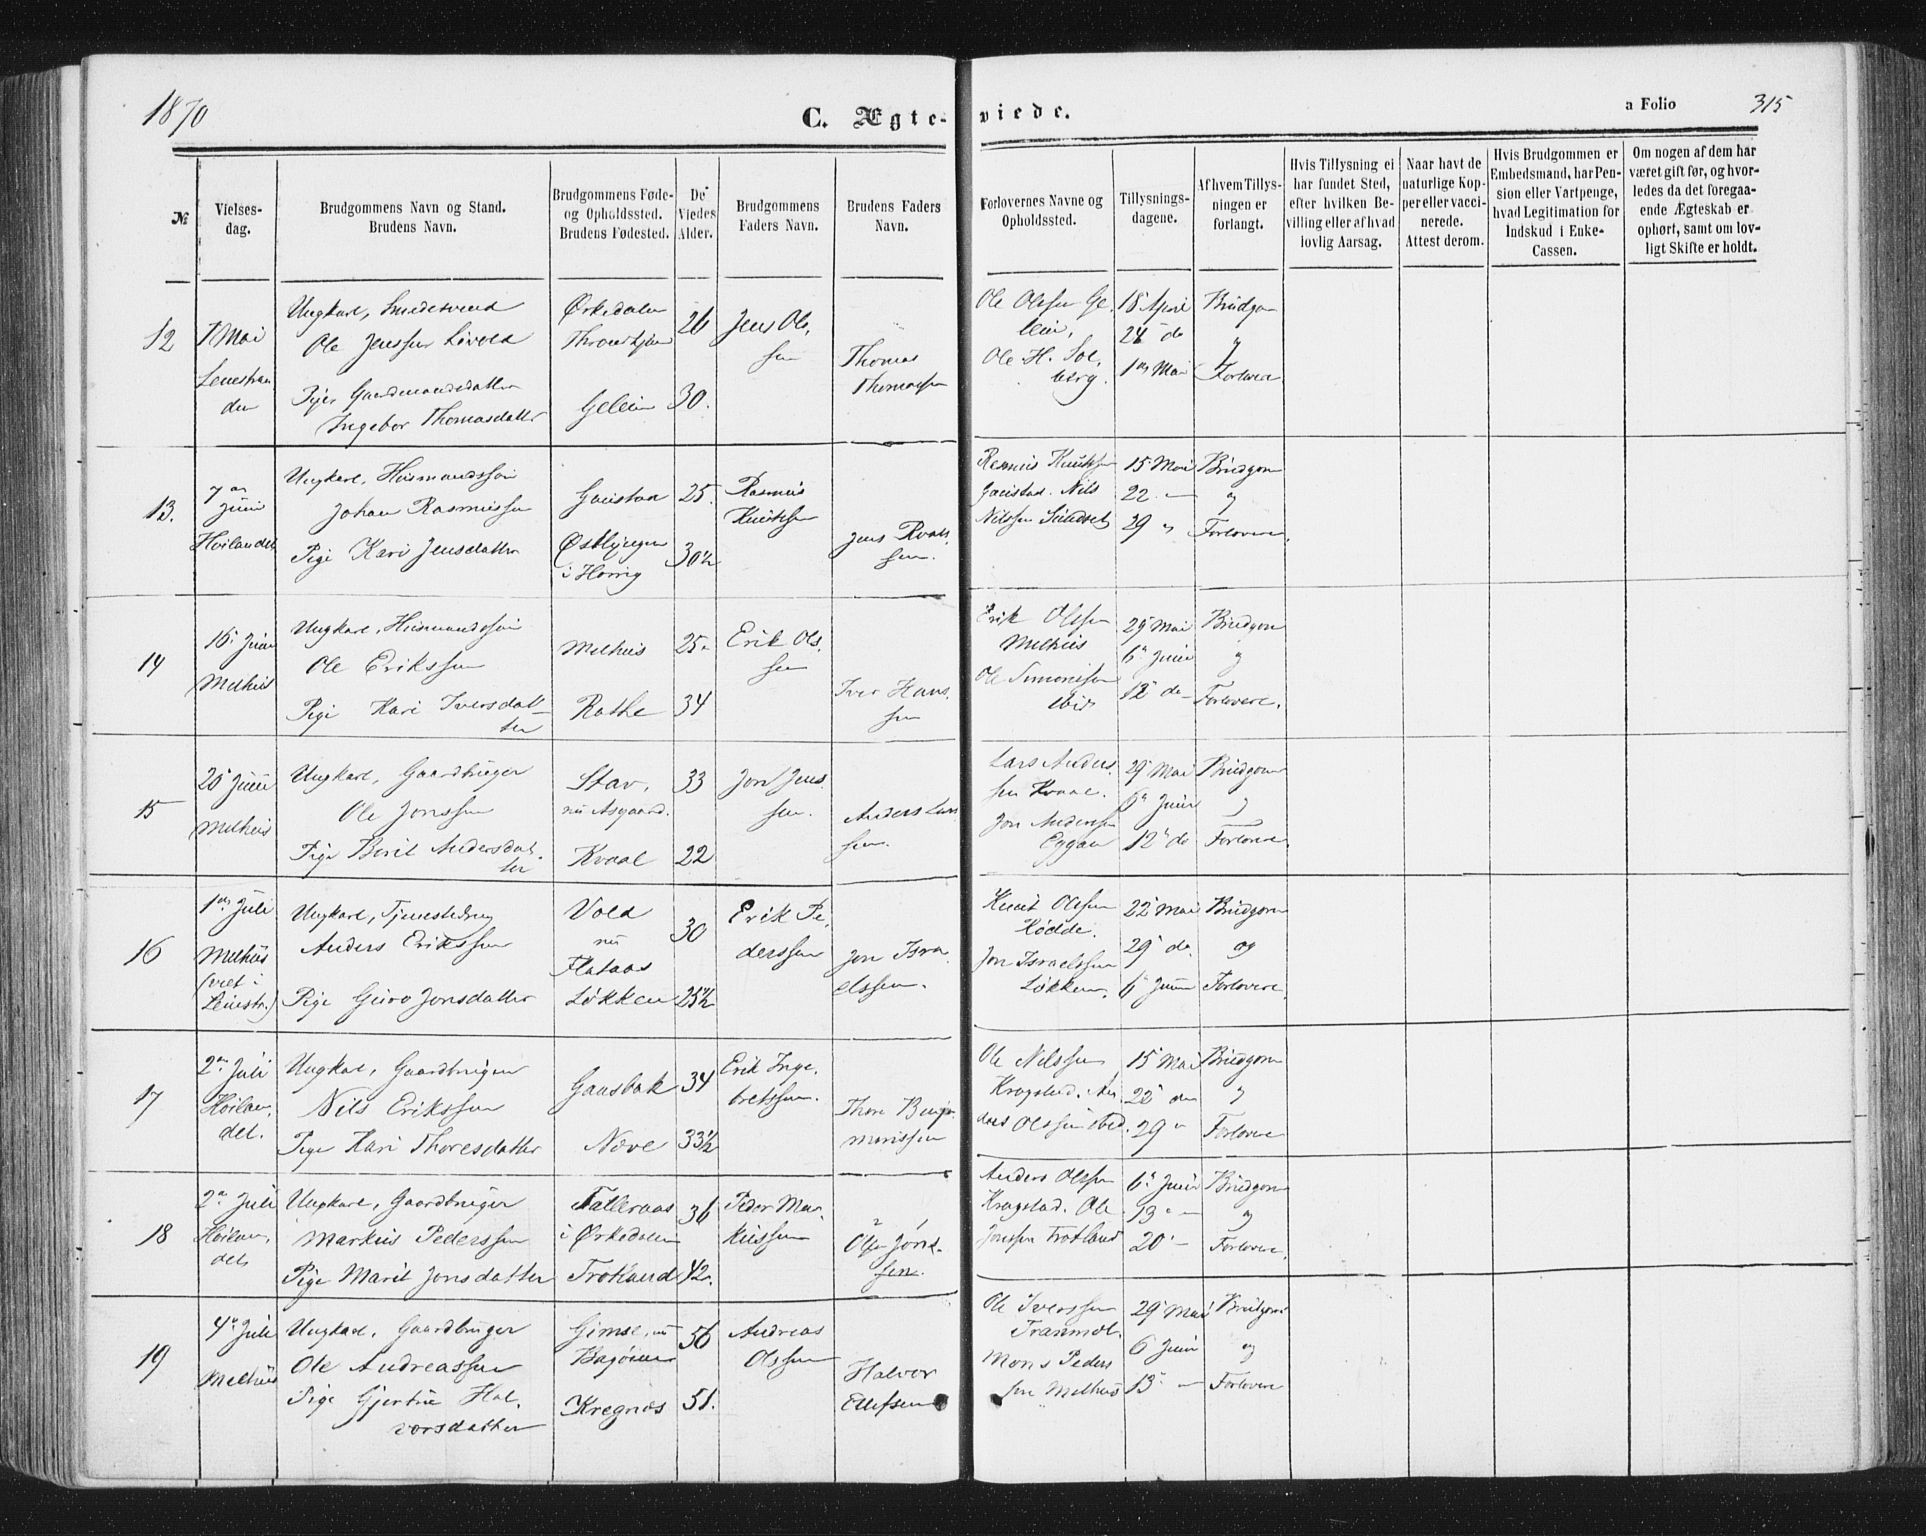 1870
C. Ægte-
viede.
a Folio
315
№
Vielses-
dag.
Brudgommens Navn og Stand.
Brudens Navn.
Brudgommens Føde-
og Opholdssted.
Brudens Fødested.
De
Viedes
Alder.
Brudgommens
Faders Navn.
Brudens Faders
Navn.
Forlovernes Navne og
Opholdssted.
Tillysnings-
dagene.
Af hvem Tillys-
ningen er
forlangt.
Hvis Tillysning ei
har fundet Sted,
efter hvilken Be-
villing eller af hvad
lovlig Aarsag.
Naar havt de
naturlige Kop-
per eller vacci-
nerede.
Attest derom.
Hvis Brudgommen er
Embedsmand, har Pen-
sion eller Vartpenge,
hvad Legitimation for
Indskud i Enke-
Cassen.
Om nogen af dem har
været gift før, og hvor-
ledes da det foregaa-
ende Ægteskab er
ophørt, samt om lov-
ligt Skifte er holdt.
12
1 Mai
Leinstran
den
Ungkarl, Smedesvend
Ole Jenssen
Pige, Gaardmandsdatter
Ingebor Thomasdatter
Ørkedalen
Throndhjem
Gelein
26
30.
Jens Ols.
sen
Thomas
Thomassen
Ole Olssen Ge.
lein,
Ole H. Sol.
berg.
18 April
24 de
1ste Mai
Brudgom
og
Forlovere
13.
7de
Juni
Høilandet
Ungkarl, Husmandssøn
Johan Rasmussen
Pige Kari Jensdatter
Gaustad
Østbyugen
i Horrig
25.
30½
Rasmus
Knutssen
Jens Roals.
sen.
Rasmus Knutssen
Gaustad. Nils
Nilssen Sundset
15 Mai
22 —
29 "
Brudgom
og
Forlovere
14
16 Juni
Melhus
Ungkarl, Husmandssøn
Ole Erikssen
Pige Kari Iversdat-
ter
Melhus
Rathe
25
34
Erik Ols.
sen
Iver Hans.
sen
Erik Olssen
Melhus
Ole Simonssen
ibid
29 Mai
6 Juni
12 de
Brudgom
og
Forlovere.
15
20 Juni
Melhus
Ungkarl, Gaardbruger
Ole Jonssen
Pige Berit Andersdat.
ter
Stav,
nu Asgaard.
Kvaal
33
22
Jon Jens.
sen.
Anders Lars
sen.
Lars Anders.
sen Kvaal.
Jon Anderssen
Eggan
29 Mai
6 Juni
12 de
Brudgom
og
Forlovere.
16
1ste Juli
Melhus
(viet i
Leinstr.)
Ungkarl, Tjenestedreng
Anders Erikssen
Pige Guro Jonsdatter
Vold
nu
Flataas
Løkken
30
25½
Erik Pe.
derssen
Jon Isra.
elssen.
Knut Olssen
Hødde.
Jon Israelssen
Løkken.
22 Mai
29 de.
6 Juni
Brudgom
og
Forlovere.
17
2den Juli
Høilan.
det.
Ungkarl, Gaardbruger
Nils Erikssen
Pige Kari Thoresdatter
Gaasbak
Næve
34
33½
Erik Inge.
bretssen.
Thore Benja-
minssen
Ole Nilssen
Kragstad. An
ders Olssen ibid.
15 Mai
22 de
29 "
Brudgom
og
Forlovere
18
2 Juli
Høilan.
det
Ungkarl, Gaardbruger
Markus Pederssen
Pige Marit Jonsdatter
Talleraas
i Ørkedalen
Trotland
36
42.
Peder Mar.
kussen
2 1
Olsen Jons-
sen.
Anders Olssen
Kragstad. Ole
Jonssen Trotland
6 Juni
13 —
20 —
Brudgom
og
Forlovere.
19
4 Juli
Melhus
Ungkarl, Gaardbruger
Ole Andreassen
Pige Gjertrue Hal.
vorsdatter
Gimse, nu
Bagøien
Kregnes
56
51.
Andreas
Olssen
Halvor
Ellefsen
Ole Iverssen
Tranmæl.
Mons Peders
sen Melhus
29 Mai
6 Juni
13 —
Brudgom
og
Forlovere